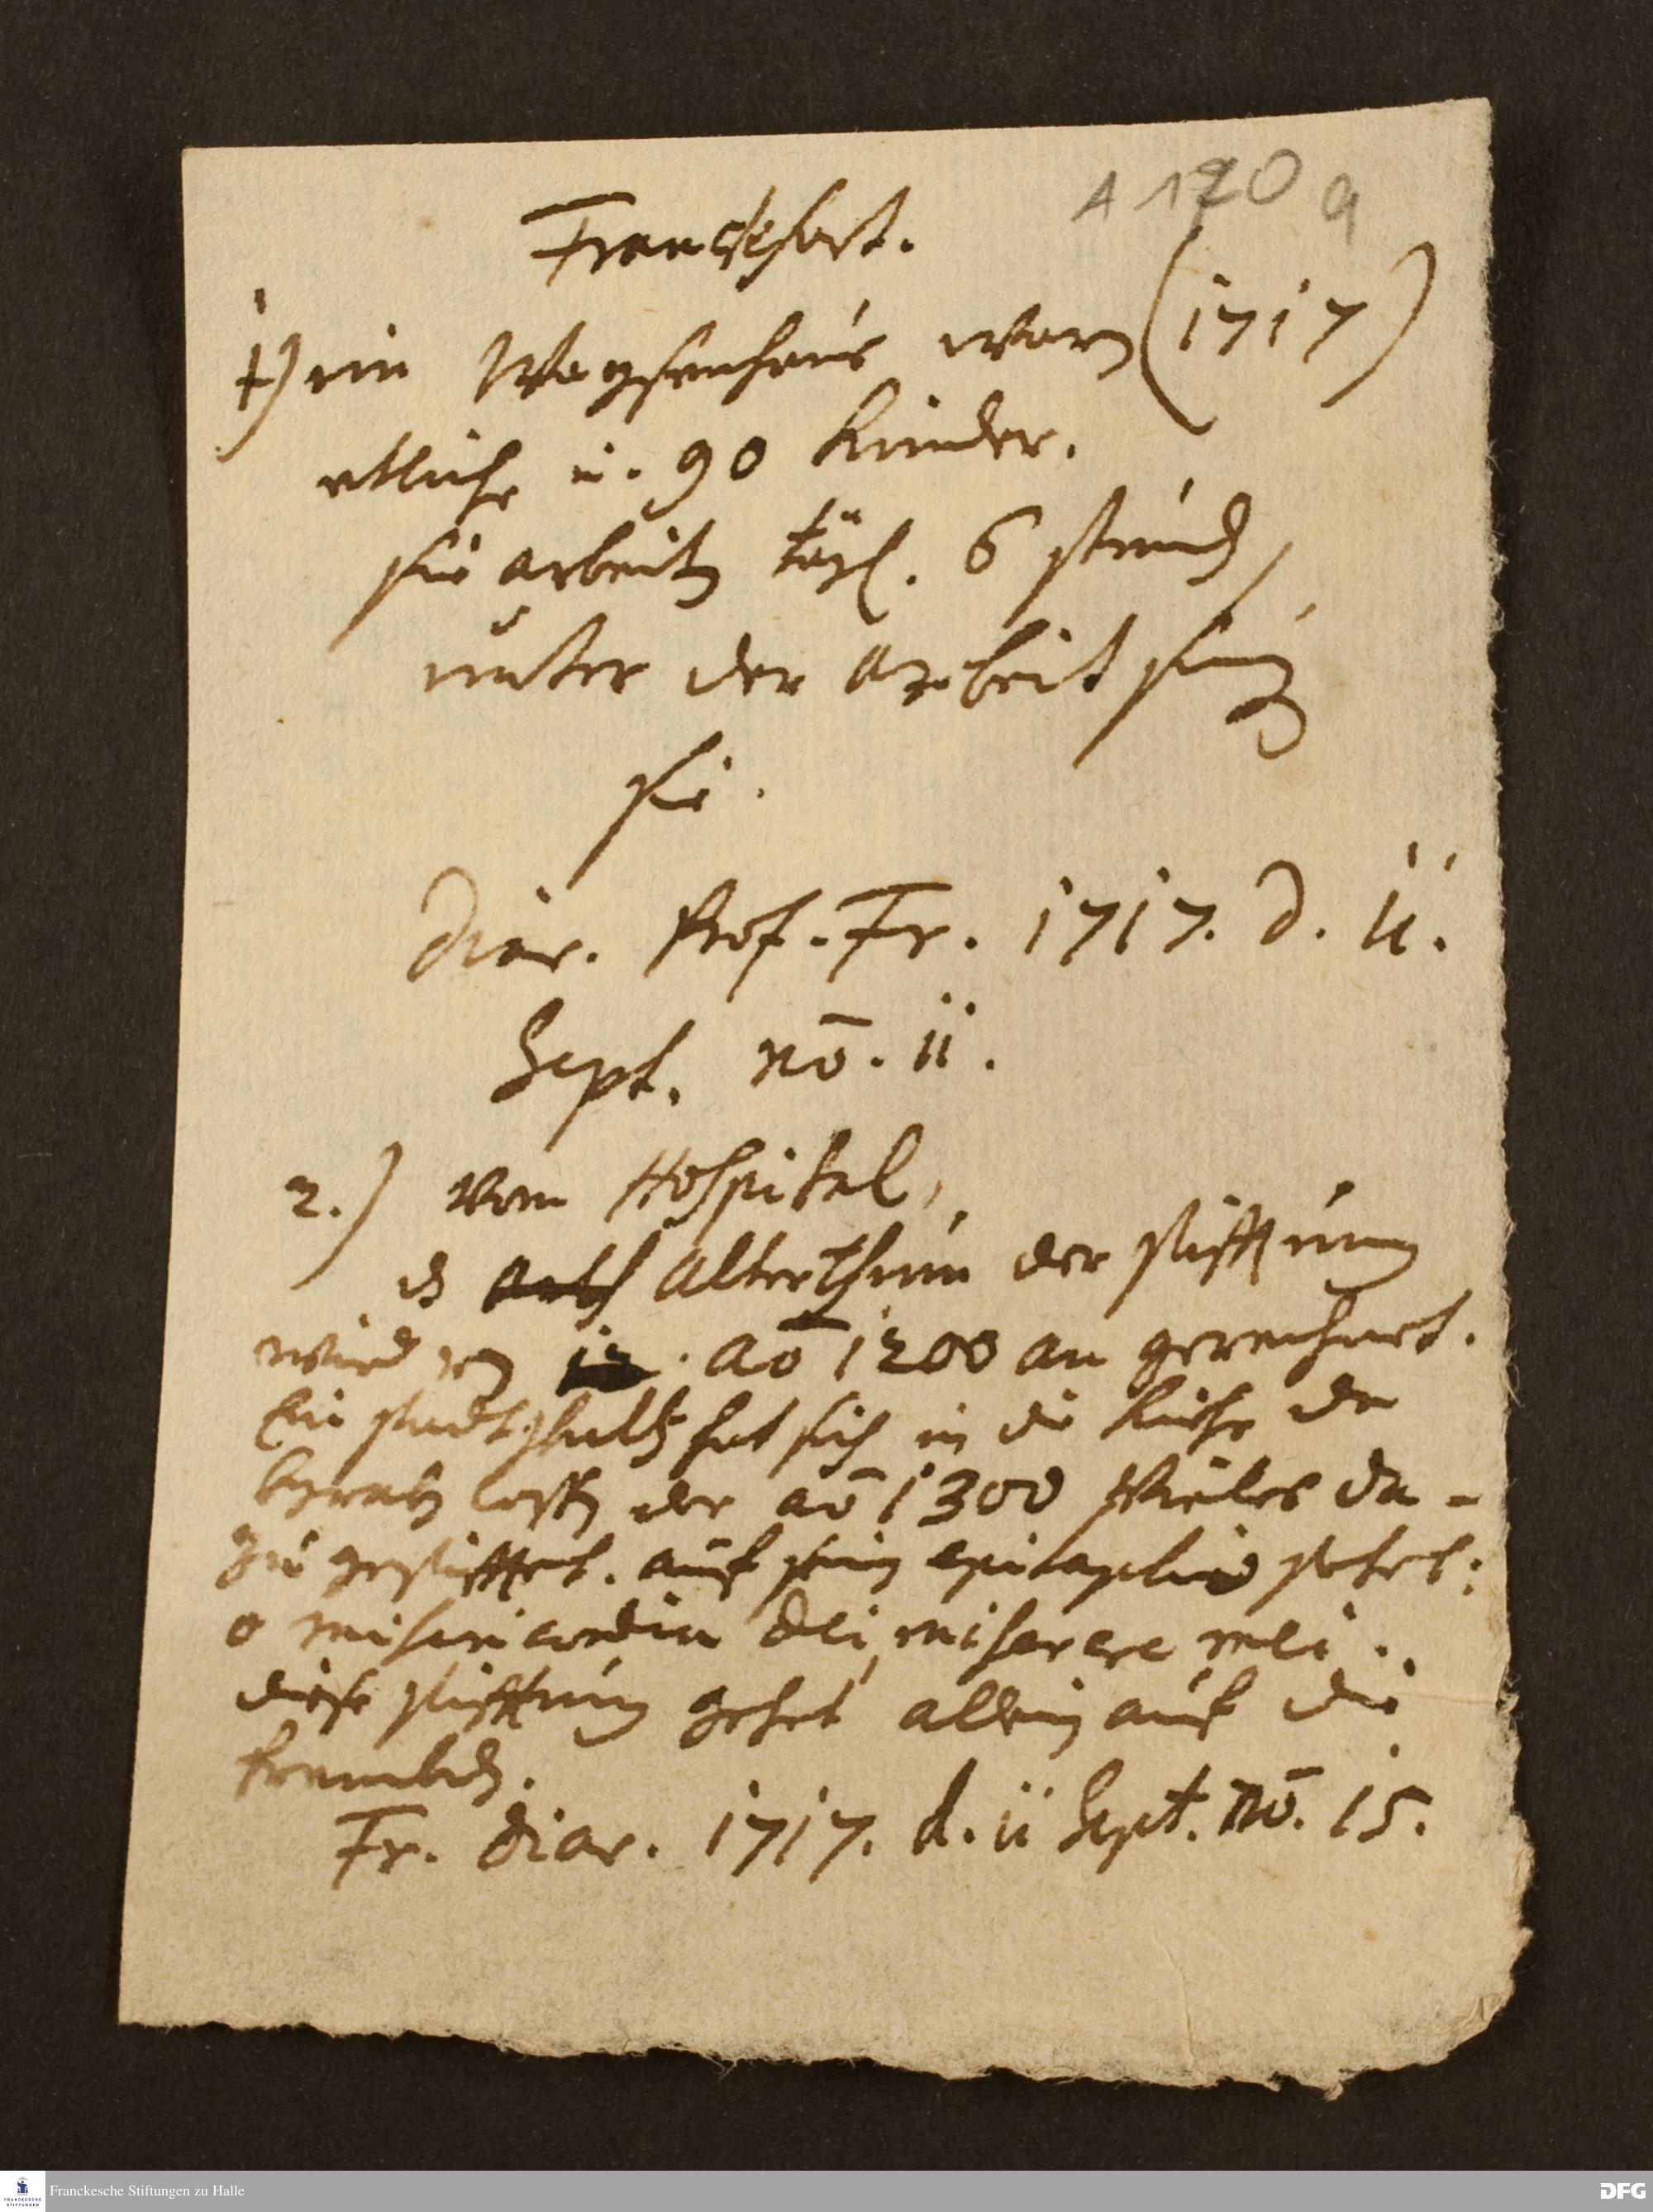 A 120 a
Franckfort.
1) im Waysenhaus waren (1717)
etliche u. 90 Kinder.
sie arbeiten tägl. 6 stunden,
unter der arbeit singen
sie.
Diar. Prof. Fr. 1717. d. 11.
Sept. no. 11.
2.) vom Hospital,
das Alterthum der stifftung
wird von ao 1200 an gerechnet.
Ein stadtschultz hat sich in die Kirche da
begraben lassen der ao 1300 Vieles da-
zu gestifftet. auf sein epitaphio stehet:
o misericordia Dei, miserere mei.
diese stifftung gehet allein auf die
frembden.
Fr. Diar. 1717. d. 11 Sept. no. 15.
Franckesche Stiftungen zu Halle
FRANCKESCHE STIFTUNGEN
DFG